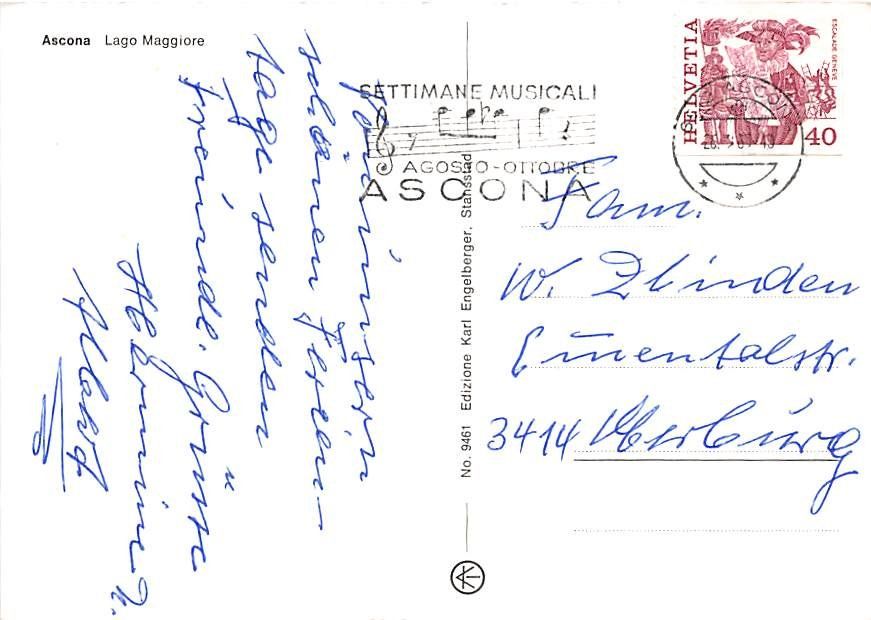 Ascona Lago Maggiore
SETTIMANE MUSICALI
AGOSTO-OTTOBRE
ASCONA
HELVETIA
ESCALADE GENÈVE
40
ASCONA
No. 9461 Edizione Karl Engelberger, Stansstad
Von unsern
schönen Ferien-
tage senden
freundl. Grüsse
Hermine u.
Fam.
W. Zbinden
Emmentalstr.
3414 Oberburg